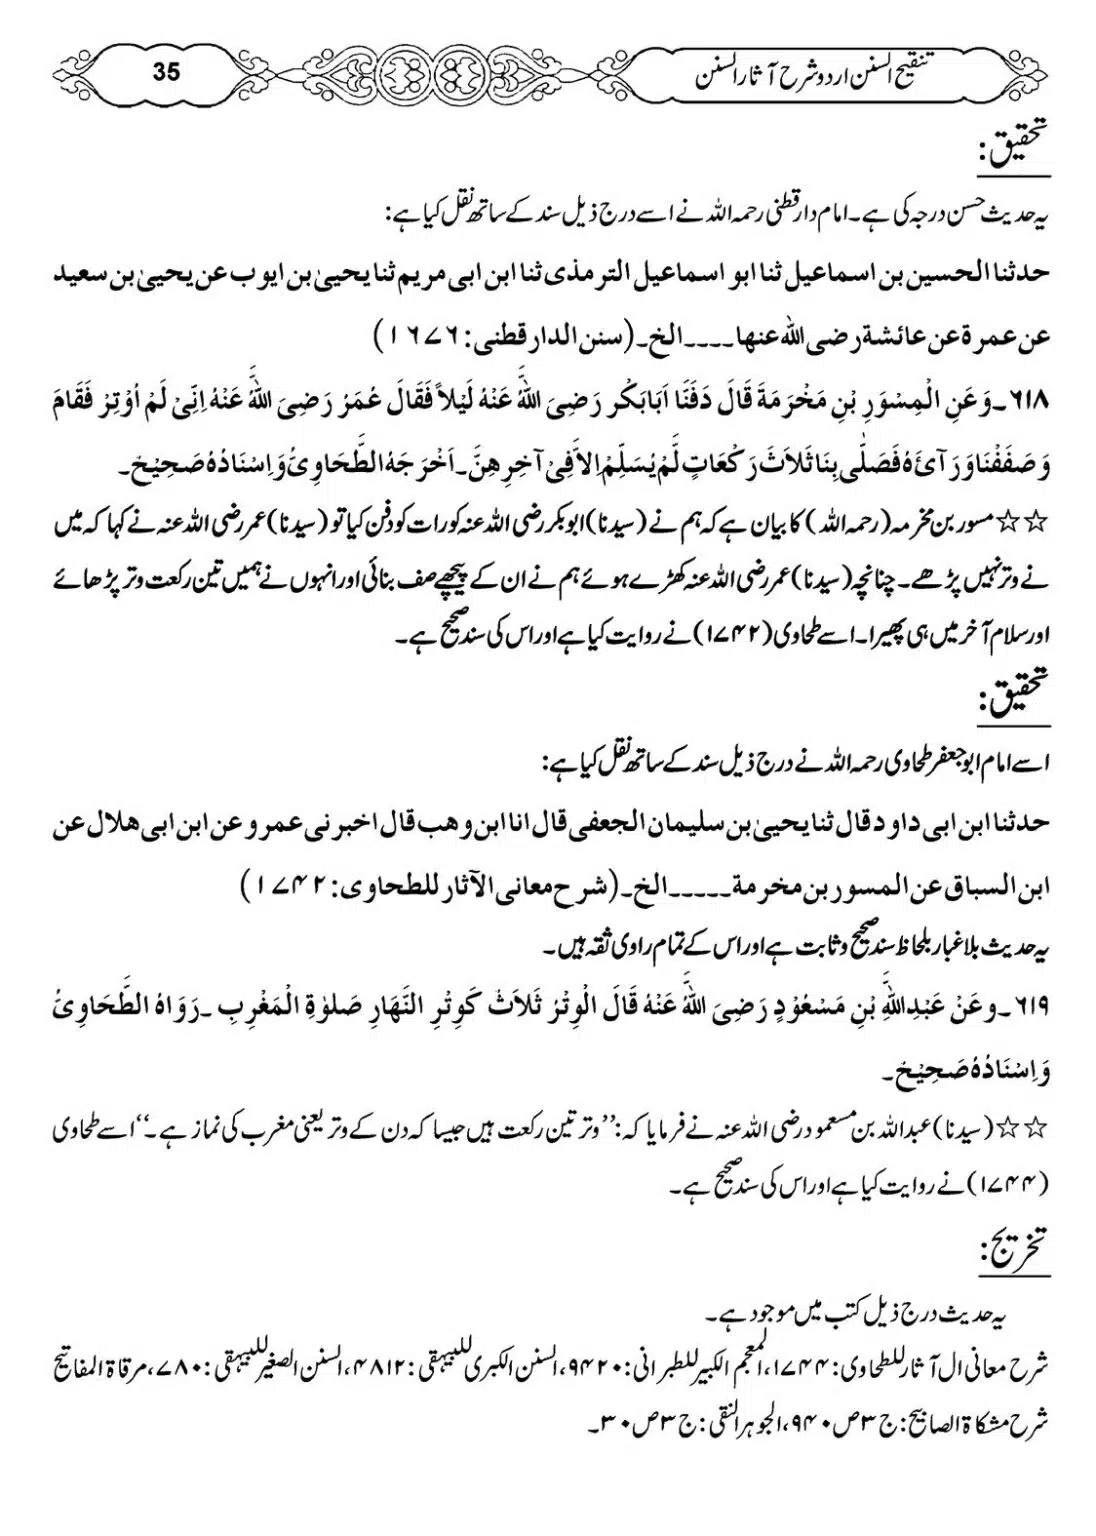 تنقیح السنن اردو شرح آثار السنن
35
تحقیق:
یہ حدیث حسن درجہ کی ہے۔ امام دارقطنی رحمہ اللہ نے اسے درج ذیل سند کے ساتھ نقل کیا ہے:
حدثنا الحسین بن اسماعیل ثنا ابو اسماعیل الترمذی ثنا ابن ابی مریم ثنا یحییٰ بن ایوب عن یحییٰ بن سعید
عن عمرة عن عائشة رضی اللہ عنها۔۔۔۔الخ۔(سنن الدارقطنی: ۱۶۷۶)
۶۱۸۔وَعَنِ الْمِسْوَرِ بْنِ مَخْرَمَةَ قَالَ دَفَنَّا اَبَابَکْرٍ رَضِیَ اللّٰهُ عَنْهُ لَیْلاً فَقَالَ عُمَرُ رَضِیَ اللّٰهُ عَنْهُ اِنِّیْ لَمْ اُوْتِرْ فَقَامَ
وَصَفَفْنَا وَرَآئَهٗ فَصَلّٰی بِنَا ثَلاَثَ رَکْعَاتٍ لَّمْ یُسَلِّمْ اِلاَّ فِیْ آخِرِهِنَّ۔اَخْرَجَهُ الطَّحَاوِیُّ وَاِسْنَادُهٗ صَحِیْحٌ۔
☆☆مسور بن مخرمہ (رحمہ اللہ) کا بیان ہے کہ ہم نے (سیدنا) ابوبکر رضی اللہ عنہ کو رات کو دفن کیا تو (سیدنا) عمر رضی اللہ عنہ نے کہا کہ میں
نے وتر نہیں پڑھے۔ چنانچہ (سیدنا) عمر رضی اللہ عنہ کھڑے ہوئے ہم نے ان کے پیچھے صف بنائی اور انہوں نے ہمیں تین رکعت وتر پڑھائے
اور سلام آخر میں ہی پھیرا۔ اسے طحاوی (۱۷۴۲) نے روایت کیا ہے اور اس کی سند صحیح ہے۔
تحقیق:
اسے امام ابو جعفر طحاوی رحمہ اللہ نے درج ذیل سند کے ساتھ نقل کیا ہے:
حدثنا ابن ابی داود قال ثنا یحییٰ بن سلیمان الجعفی قال انا ابن وهب قال اخبرنی عمرو عن ابن ابی هلال عن
ابن السباق عن المسور بن مخرمة۔۔۔۔۔الخ۔(شرح معانی الآثار للطحاوی: ۱۷۴۲)
یہ حدیث بلا غبار بلحاظ سند صحیح و ثابت ہے اور اس کے تمام راوی ثقہ ہیں۔
۶۱۹۔وعَنْ عَبْدِاللّٰهِ بْنِ مَسْعُوْدٍ رَضِیَ اللّٰهُ عَنْهُ قَالَ الْوِتْرُ ثَلاَثٌ کَوِتْرِ النَّهَارِ صَلٰوةِ الْمَغْرِبِ۔رَوَاهُ الطَّحَاوِیُّ
وَاِسْنَادُهٗ صَحِیْحٌ۔
☆☆(سیدنا) عبداللہ بن مسعود رضی اللہ عنہ نے فرمایا کہ: ’’وتر تین رکعت ہیں جیسا کہ دن کے وتر یعنی مغرب کی نماز ہے۔‘‘ اسے طحاوی
(۱۷۴۴) نے روایت کیا ہے اور اس کی سند صحیح ہے۔
تخریج:
یہ حدیث درج ذیل کتب میں موجود ہے۔
شرح معانی ال آثار للطحاوی: ۱۷۴۴، المعجم الکبیر للطبرانی: ۹۴۲۰، السنن الکبری للبیہقی: ۴۸۱۲، السنن الصغیر للبیہقی: ۷۸۰، مرقاۃ المفاتیح
شرح مشکاۃ الصابیح: ج ۳ ص ۹۴۰، الجوہر النقی: ج ۳ ص ۳۰۔